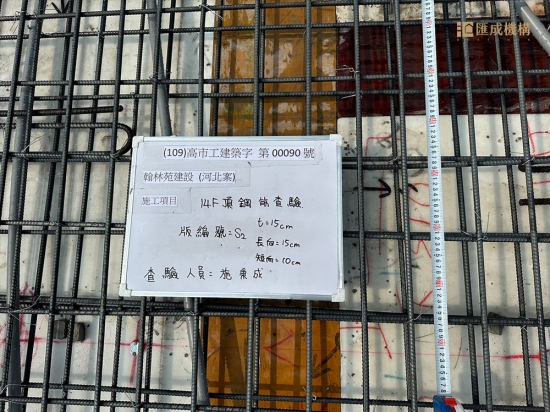 匯成機構
(109)高市工建築字 第00090號
翰林苑建設 (河北案)
施工項目 14F頂鋼筋查驗
版編號=S2 t=15cm
長向=15cm
短向=10cm
查驗人員=施秉成